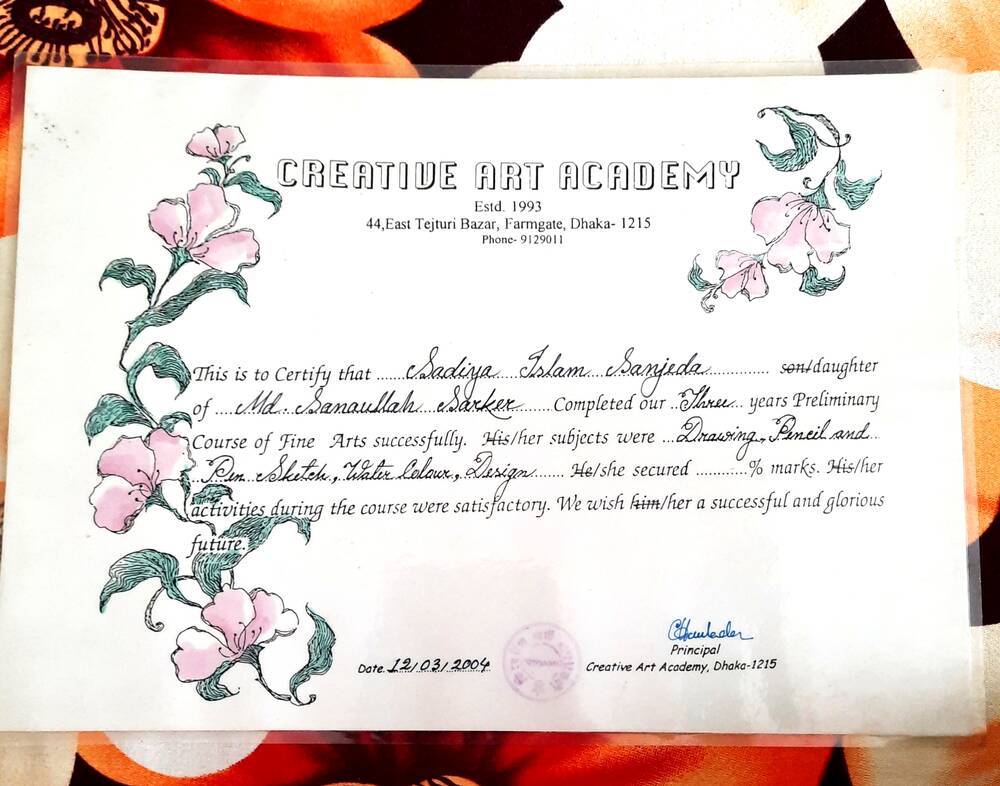 CREATIVE ART ACADEMY
Estd. 1993
44,East Tejturi Bazar, Farmgate, Dhaka- 1215
Phone- 9129011
This is to Certify that ......Sadiya Islam Sanjeda............. son/daughter
of ....Md. Sanaullah Sarker......Completed our ..Three... years Preliminary
Course of Fine Arts successfully. His/her subjects were ...Drawing, Pencil and..
..Pen Sketch, Water Colour, Design....... He/she secured ...........% marks. His/her
activities during the course were satisfactory. We wish him/her a successful and glorious
future.
Date. 12/03/2004
Principal
Creative Art Academy, Dhaka-1215